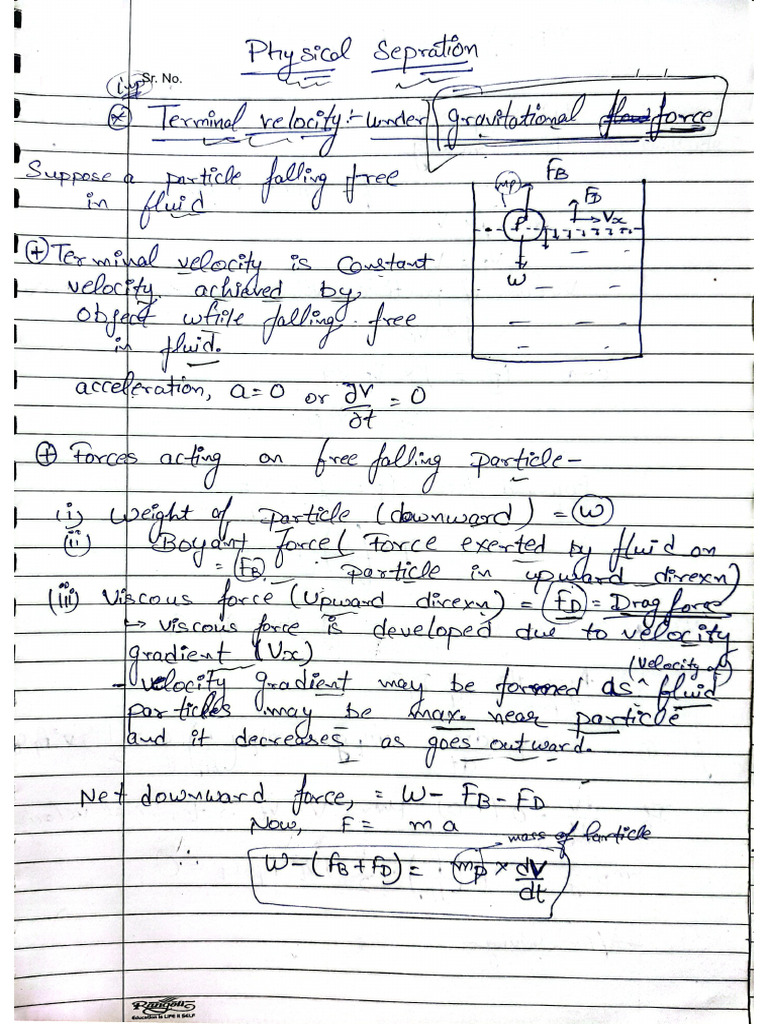 Physical Sepration
Sr. No.
(imp)
Terminal velocity:- under gravitational force
Suppose a particle falling free
in fluid
mp
FB
FD
P
Vx
W
(+) Terminal velocity is constant
velocity achieved by
object while falling free
in fluid.
acceleration, a=0 or ∂V/∂t = 0
(+) Forces acting on free falling particle-
(i) Weight of particle (downward) = W
(ii) Boyant force (Force exerted by fluid on
= FB particle in upward direxn)
(iii) Viscous force (Upward direxn) = FD = Drag force
↳ viscous force is developed due to velocity
gradient (Vx)
(velocity of)
- velocity gradient may be formed as ^ fluid
particles may be max. near particle
and it decreases as goes outward.
Net downward force, = W - FB - FD
Now, F = ma
mass of Particle
∴ W-(FB+FD) = mp × dV/dt
Rangoli
Education is LIFE it SELF